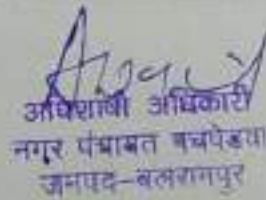 अधिशाषी अधिकारी
नगर पंचायत पचपेडवा
जनपद-बलरामपुर